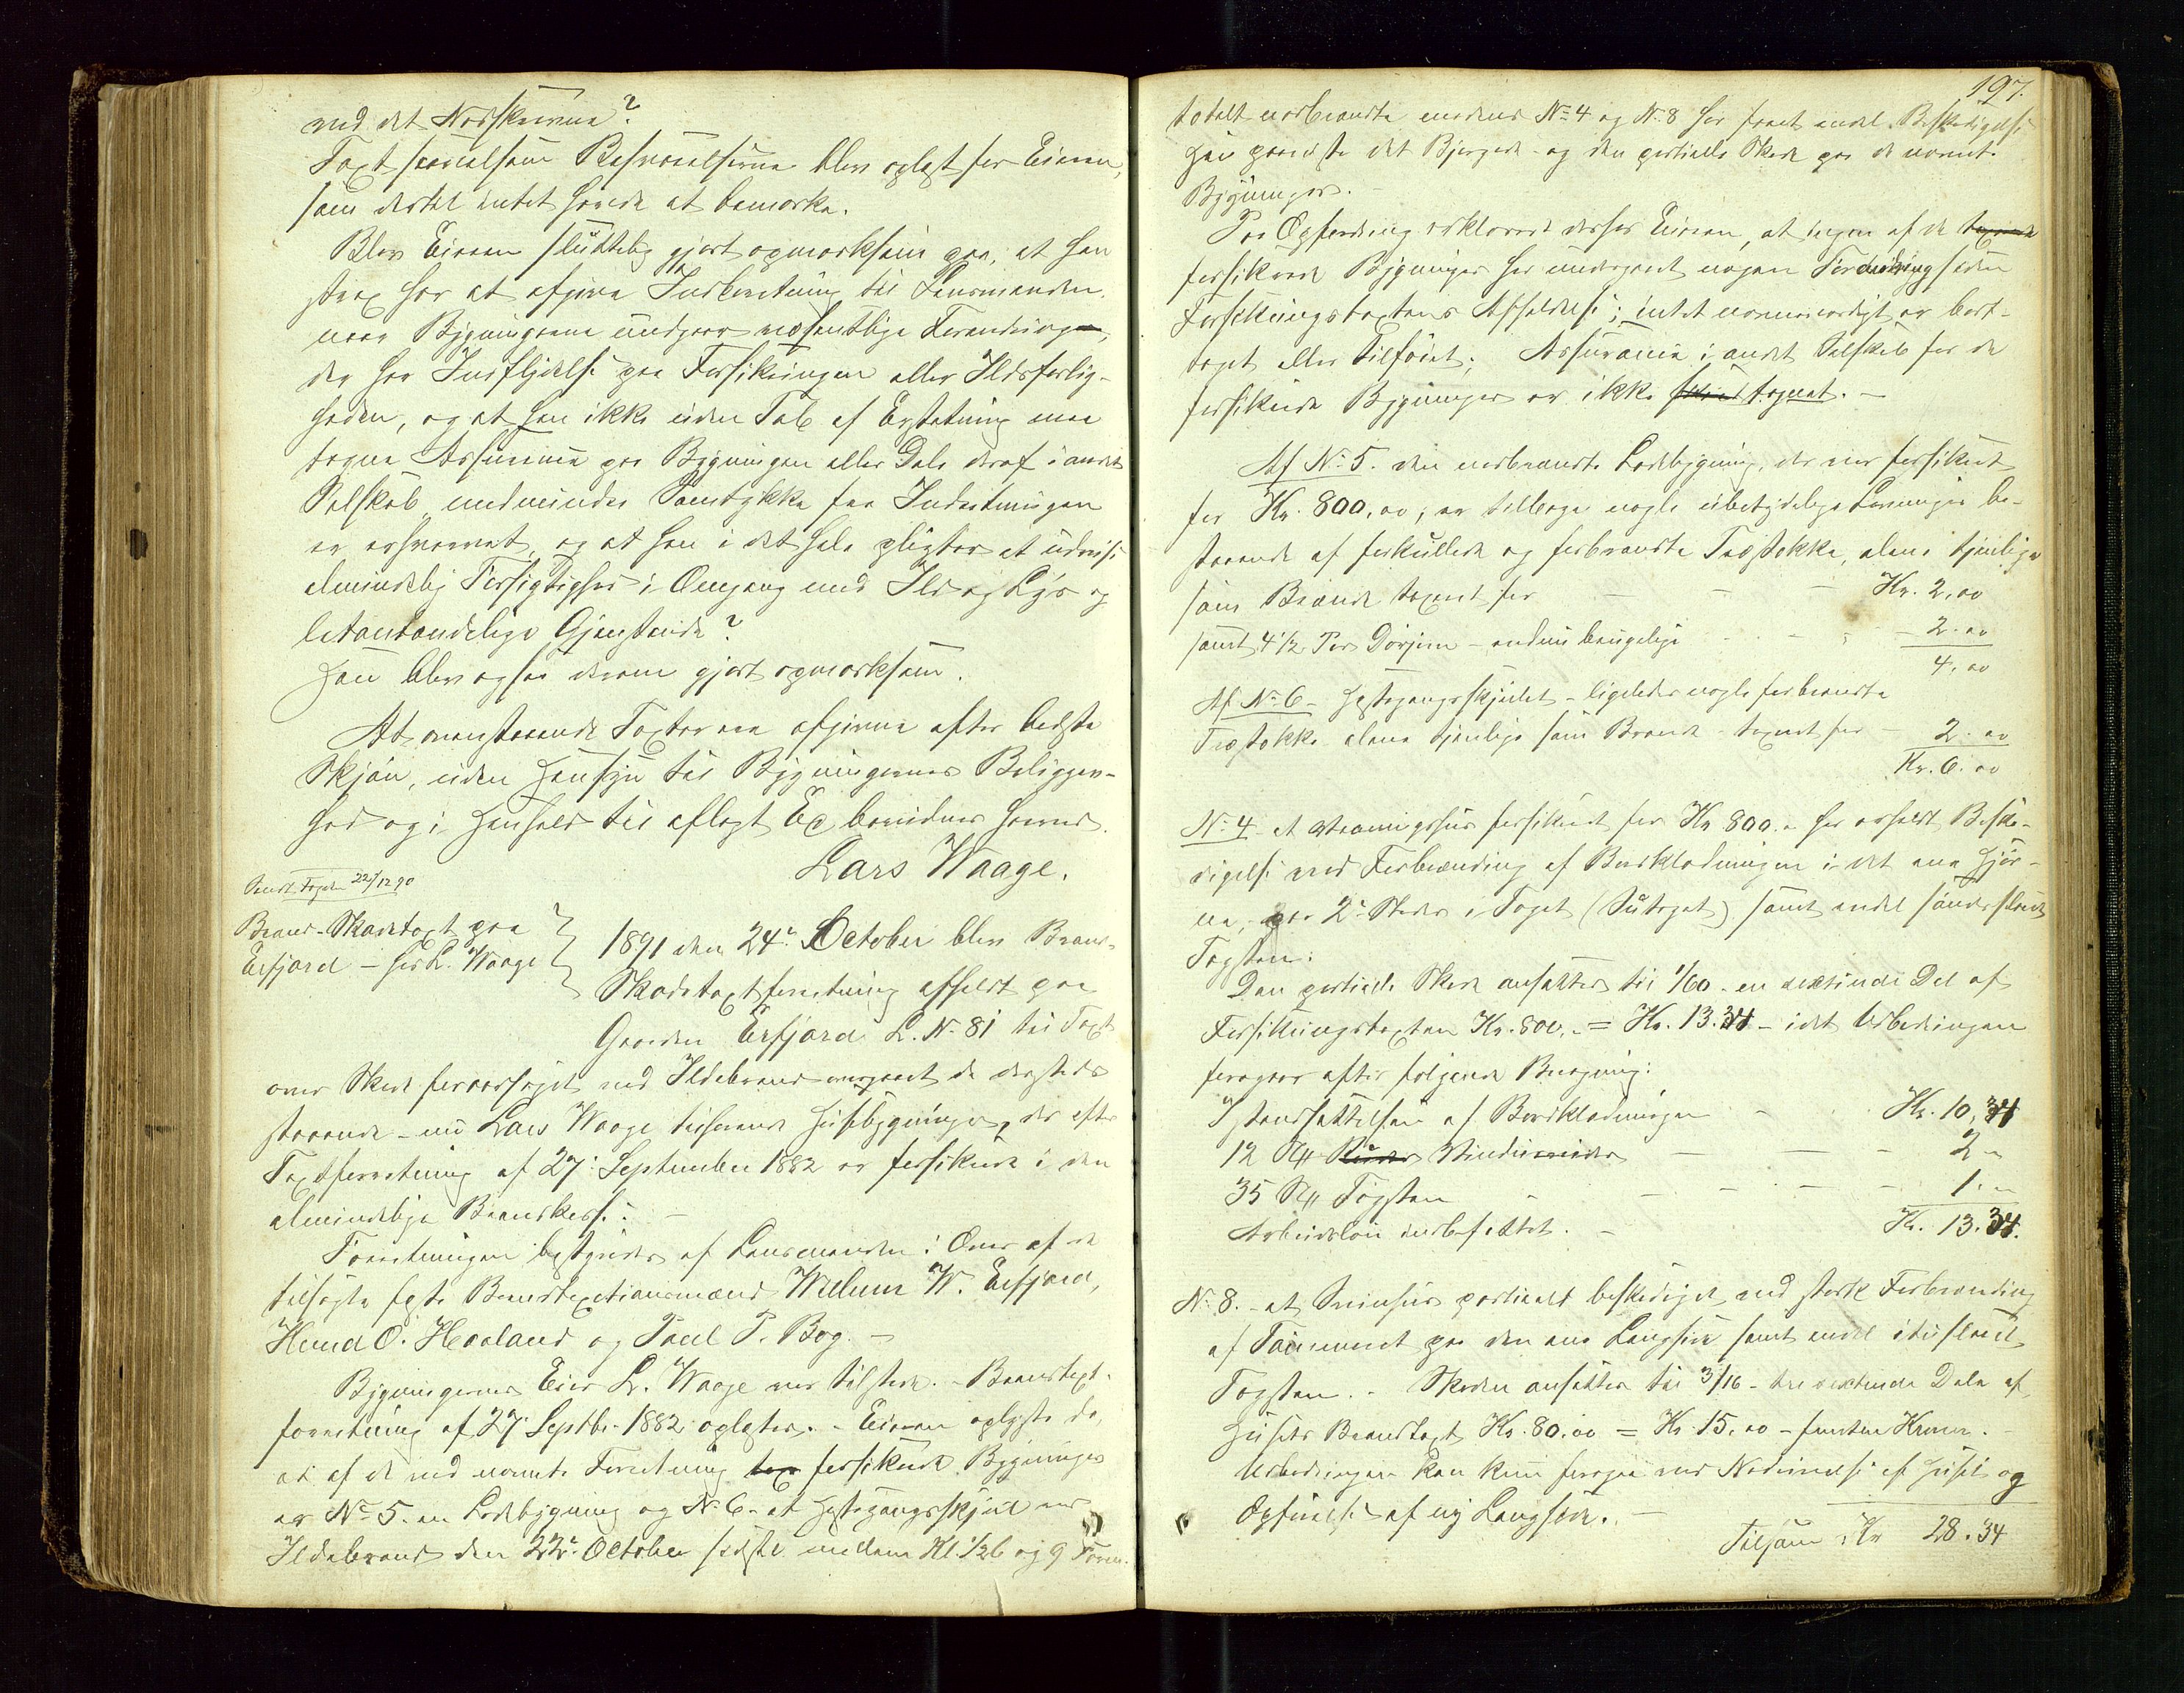 ved det Nedskrevne?
Taxt saavelsom Besvarelserne blev oplæst for Eieren,
som dertil intet havde at bemærke.
Blev Eieren sluttelig gjort opmærksom paa, at han
strax har at afgive Indberetning til Lensmanden,
naar Bygningerne undgaar væsentlige Forandringer,
der har Indflydelse paa Forsikringen eller Ildsfarlig-
heden, og at han ikke uden Tab af Erstatning maa
tegne Assurance paa Bygningen eller Dele deraf i andet
Selskab, medmindre Samtykke fra Indretningen
er erhvervet, og at han i det Hele pligter at udvise
almindelig Forsigtighed i Omgang med Ild og Lys og
letantændelige Gjenstande?
Han blev ogsaa derom gjort opmærksom.
At ovenstaaende Taxter ere afgivne efter bedste
Skjøn, uden Hensyn til Bygningernes Beliggen-
hed og i Henhold til aflagt Ed bevidnes herved.
Lars Waage.
Sendt Fogden 22/12 90
Brand-Skadetaxt paa
Erfjord – hos L. Waage
1891 den 24de October blev Brand-
Skadetaxtforretning afholdt paa
Gaarden Erfjord L. No 81 til Taxt
over Skade foraarsaget ved Ildebrand overgaaet de dersteds
staaende – nu Lars Waage tilhørende Husebygninger, der efter
Taxtforretning af 27. September 1882 er forsikrede i den
almindelige Brandkasse: –
Forretningen bestyredes af Lensmanden i Overvær af de
tilsagte faste Brandtaxtationsmænd Willum W. Erfjord,
Knud O. Hovland og Paul P. Bog. –
Bygningernes Eier L. Waage var tilstede. – Brandtaxt-
forretning af 27. Septbr. 1882 oplæstes. – Eieren oplyste da,
at af de ved nævnte Forretning forsikrede Bygninger
er No 5. en Ladebygning og No 6. et Hestegangsskjul ved
Ildebrand den 22de October sidste mellem Kl. 1/2 6 og 9 Form.
197.
totalt nedbrændte medens No 4 og No 8 har faaet endel Beskadigelse
Han paaviste det Bjergede og den partielle Skade paa de nævnte
Bygninger. –
Paa Opfordring erklærede derhos Eieren, at ingen af de
forsikrede Bygninger har undergaaet nogen Forandring siden
Forsikringstaxtens Afholdelse; intet nævneværdigt er bort-
taget eller tilføiet; Assurance i andet Selskab for de
forsikrede Bygninger er ikke tegnet. –
Af No 5. den nedbrændte Ladebygning, der var forsikret
for Kr. 800,00; er tilbage nogle ubetydelige Levninger be-
staaende af forkullede og forbrændte Træstokke, alene tjenlige
som Brænde taxeret for – – – Kr. 2,00
samt 4 1/2 Par Dørjern – endnu brugelige – – 2.00
4,00
Af No 6 – Hestegangsskjulet – ligeledes nogle forbrændte
Træstokke alene tjenlige som Brænde – taxeret for – 2.00
Kr. 6.00
No 4 – et Vaaningshus forsikret for Kr 800 – har erholdt Beska-
digelse ved Forbrænding af Bordklædningen i det ene Hjør-
ne, paa 2de Steder i Taget (Sutaget) samt endel sønderslaaede
Tagsten:
Den partielle Skade ansættes til 1/60 – en sextiende Del af
Forsikringstaxten Kr. 800,– = Kr. 13.34 – idet Udbedringen
foregaar efter følgende Beregning:
Istandsættelsen af Bordklædningen – – Kr. 10,34
12 St Vinduesruder – – – 2 –
35 St Tagsten – – – – – 1. –
Arbeidsløn indbefattet. – Kr. 13.34.
No 8. – et Smiehus partielt beskadiget, ved stærk Forbrænding
af Tømmeret paa den ene Langside samt endel ituslaaet
Tagsten. – Skaden ansættes til 3/16 – tre sextende Dele af
Husets Brandtaxt Kr. 80.00 = Kr. 15,00 – femten Kroner. –
Udbedringen kan kun foregaa ved Nedrivelse af Huset og
Opførelse af ny Langside. –
Tilsam. Kr 28.34